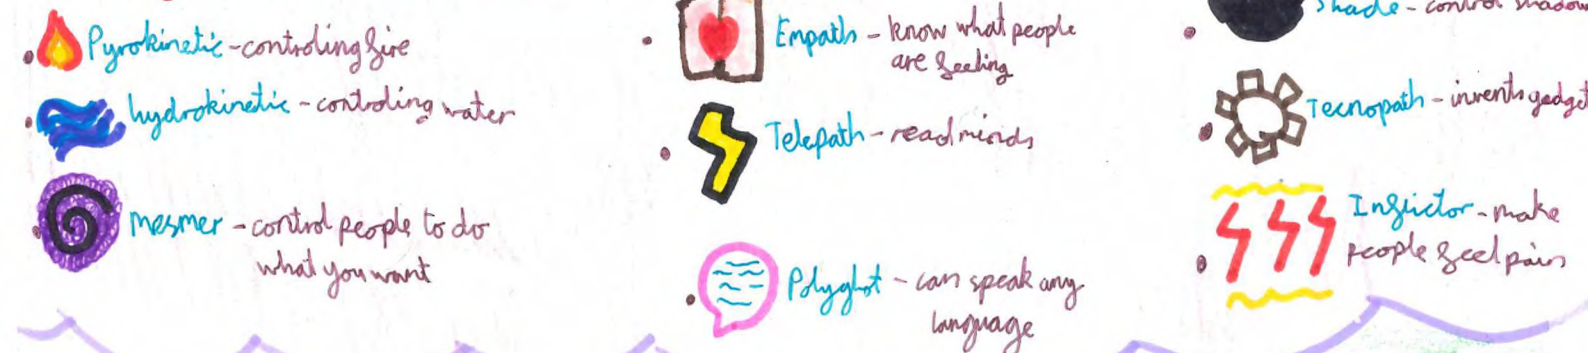 Pyrokinetic - controling fire
hydrokinetic - controling water
mesmer - control people to do
what you want
Empath - know what people
are feeling
Telepath - read minds
Polyglot - can speak any
language
Shade - control shadow
Tecnopath - invents gadget
Inflictor - make
people feel pain